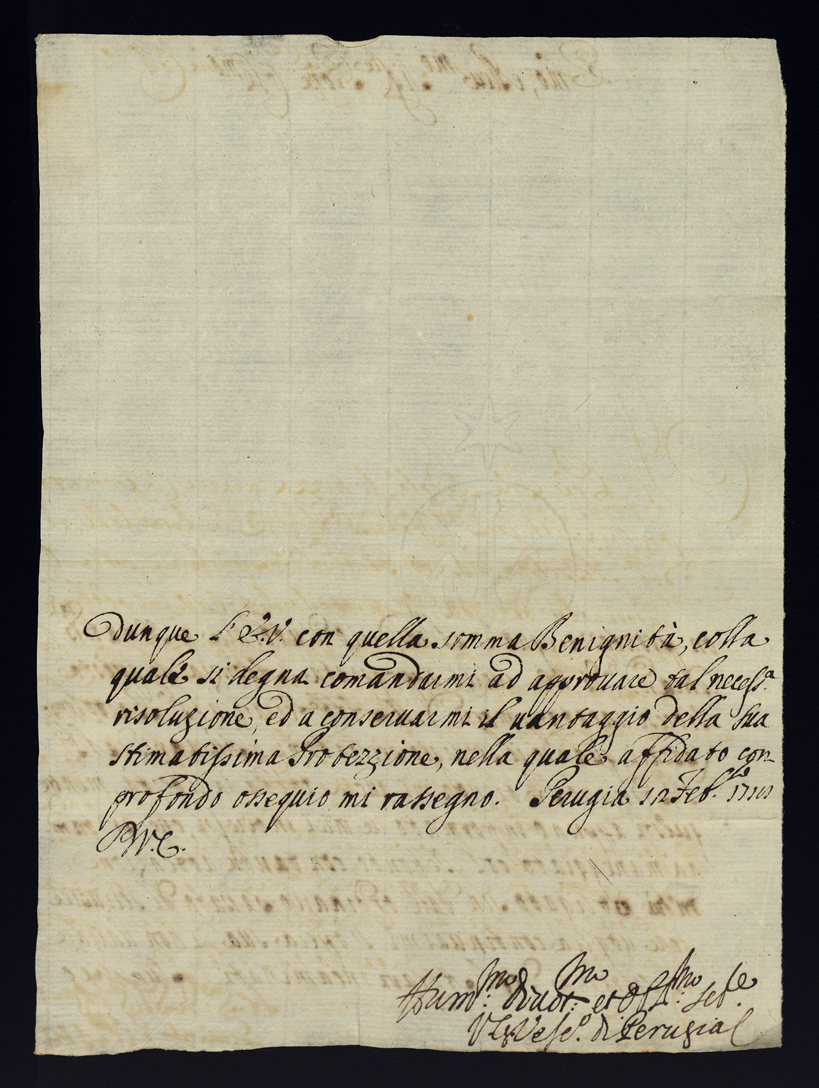 Dunque l'E. V. con quella somma Benignità, colla
quale si degna comandarmi ad approvare tal necess.ª
risoluzione, ed a conservarmi il vantaggio della sua
stimatissima Protezzione, nella quale affidato con
profondo ossequio mi rassegno. Perugia 12 Feb.º
Hum.mo Divot.mo et Obl.mo Ser.e
V. Vesc.º di Perugia